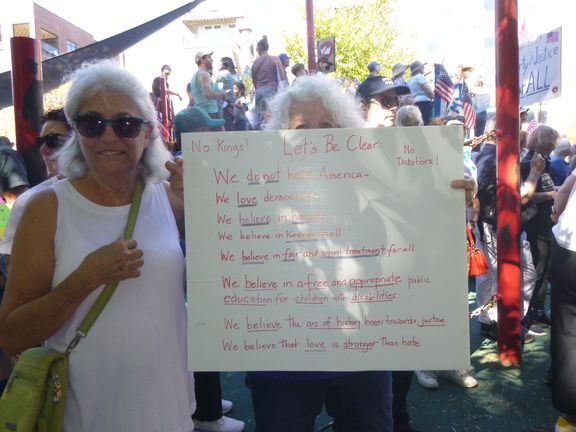 No Kings! Let's Be Clear: No Dictators!
We do not hate America-
We love democracy-
We believe in honesty
We believe in kindness to all
We believe in fair and equal treatment for all
We believe in a free and appropriate public
education for children with disabilities
We believe the arc of history bends towards justice
We believe that love is stronger than hate
Justice
ALL